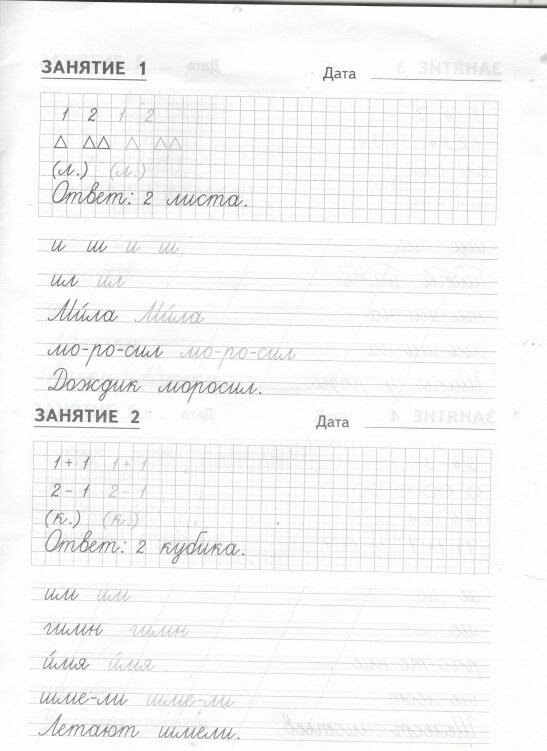 ЗАНЯТИЕ 1 Дата
1 2 1 2
(л.) (л.)
Ответ: 2 листа.
и ш и ш
ил ил
Ми́ла Ми́ла
мо-ро-сил мо-ро-сил
Дождик моросил.
ЗАНЯТИЕ 2 Дата
1 + 1 1 + 1
2 - 1 2 - 1
(к.) (к.)
Ответ: 2 кубика.
им им
гимн гимн
и́мя и́мя
шме-ли шме-ли
Летают шмели.